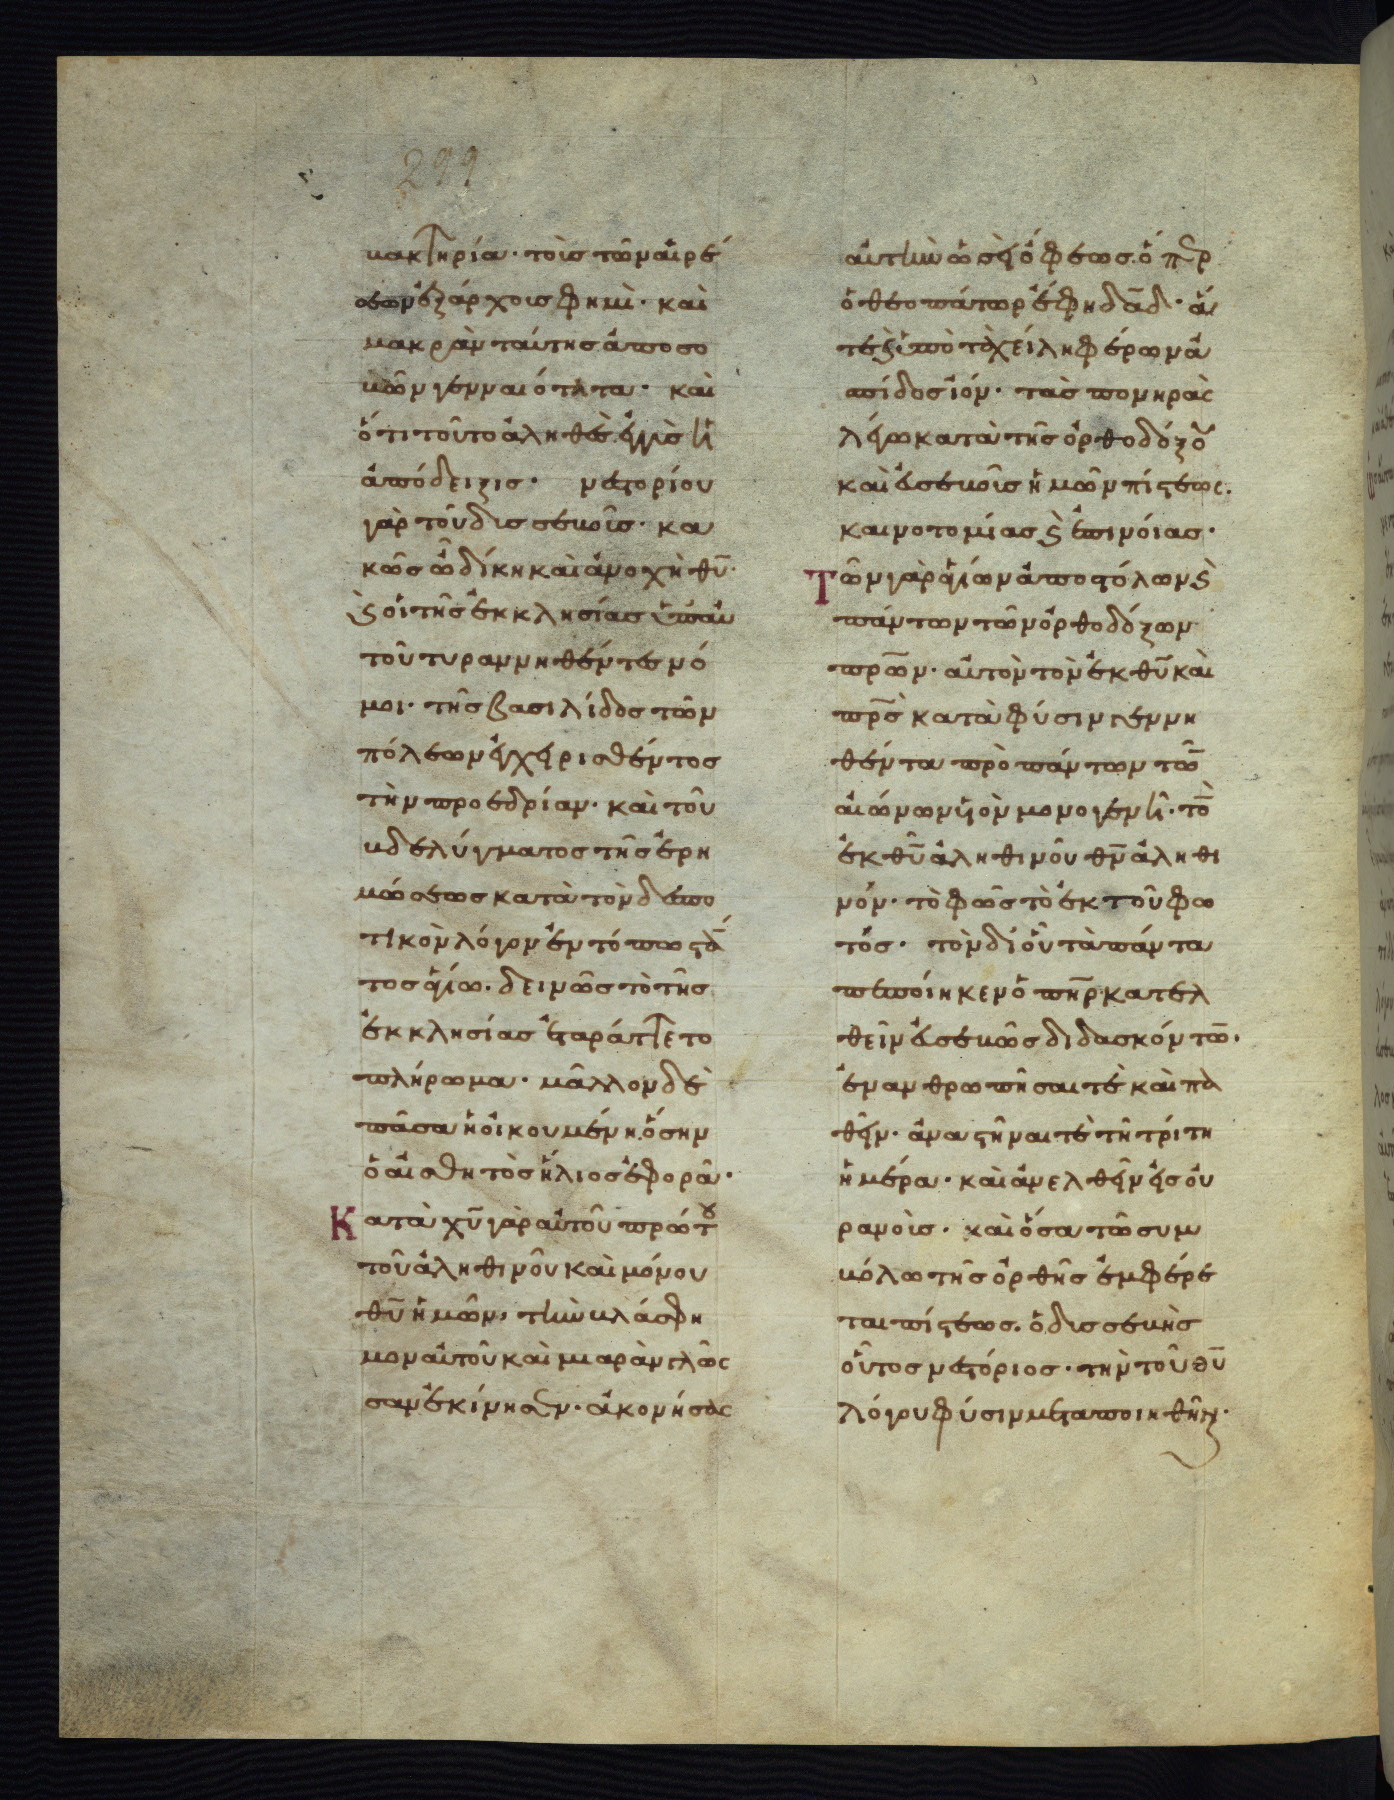 299
βακτηρία· τοῖς τῶν αἱρέ
σεων ἐξάρχοις φημὶ· καὶ
μακρὰν ταύτης ἀποσο
βῶν γενναιότητα· καὶ
ὅτι τοῦτο ἀληθὲς ἐγγὺς ἡ
ἀπόδειξις· νεστορίου
γὰρ τοῦ δυσσεβοῦς· κα
κῶς ᾧ δίκη καὶ ἀνοχὴ θυ·
ϗ οἱ τῆς ἐκκλησίας ὑπ αυ
τοῦ τυραννηθέντες νό
μοι· τῆς βασιλίδος τῶν
πόλεων ἐγχειρισθέντος
τὴν προεδρίαν· καὶ τοῦ
βδελύγματος τῆς ἐρη
μώσεως κατὰ τὸν δεσπο
τικὸν λόγον ἐν τόπω στά
τος ἁγίω· δεινῶς τὸ τῆς
ἐκκλησίας ἐταράττετο
πλήρωμα· μᾶλλον δὲ
πᾶσα ἡ οἰκουμένη ὅσην
ὁ αἰσθητὸς ἥλιος ἐφορᾶ·
Κατὰ χυ γὰρ αὐτοῦ πρώτου
τοῦ ἀληθινοῦ καὶ μόνου
θυ ἡμῶν· τὴν βλάσφη
μον αὐτοῦ καὶ μιαρὰν γλῶσ
σαν ἐκίνησεν· ἀκονήσας
αὐτὴν ὡσεὶ ὄφεως· ὅπερ
ὁ θεοπάτωρ ἔφη δαδ· ἅ
τε ϗ ὑπὸ τὰ χείλη φέρων ἀ
σπίδος ἰόν· τὰς πονηρὰς
λέγω κατὰ τῆς ὀρθοδόξου
καὶ εὐσεβοῦς ἡμῶν πίστεως·
καινοτομίας ϗ ἐπινοίας·
Τῶν γὰρ ἁγίων ἀποστόλων ϗ
πάντων τῶν ὀρθοδόξων
πρων· αὐτὸν τὸν ἐκ θυ καὶ
πρς κατὰ φύσιν γεννη
θέντα πρὸ πάντων τῶν
αἰώνων υἱὸν μονογενῆ· τὸν
ἐκ θυ ἀληθινοῦ θν ἀληθι
νόν· τὸ φῶς τὸ ἐκ τοῦ φω
τός· τὸν δι οὗ τὰ πάντα
πεποίηκεν ὁ πηρ κατελ
θεῖν εὐσεβῶς διδασκόντων·
ἐνανθρωπῆσαι τὲ καὶ πα
θεῖν· ἀναστῆναι τὲ τῆ τρίτη
ἡμέρα· καὶ ἀνελθεῖν εἰς οὐ
ρανοὺς· καὶ ὅσα τῶ συμ
βόλω τῆς ὀρθῆς ἐμφέρε
ται πίστεως· ὁ δυσσεβὴς
οὗτος νεστόριος· τὴν τοῦ θυ
λόγου φύσιν μεταποιηθῆναι·